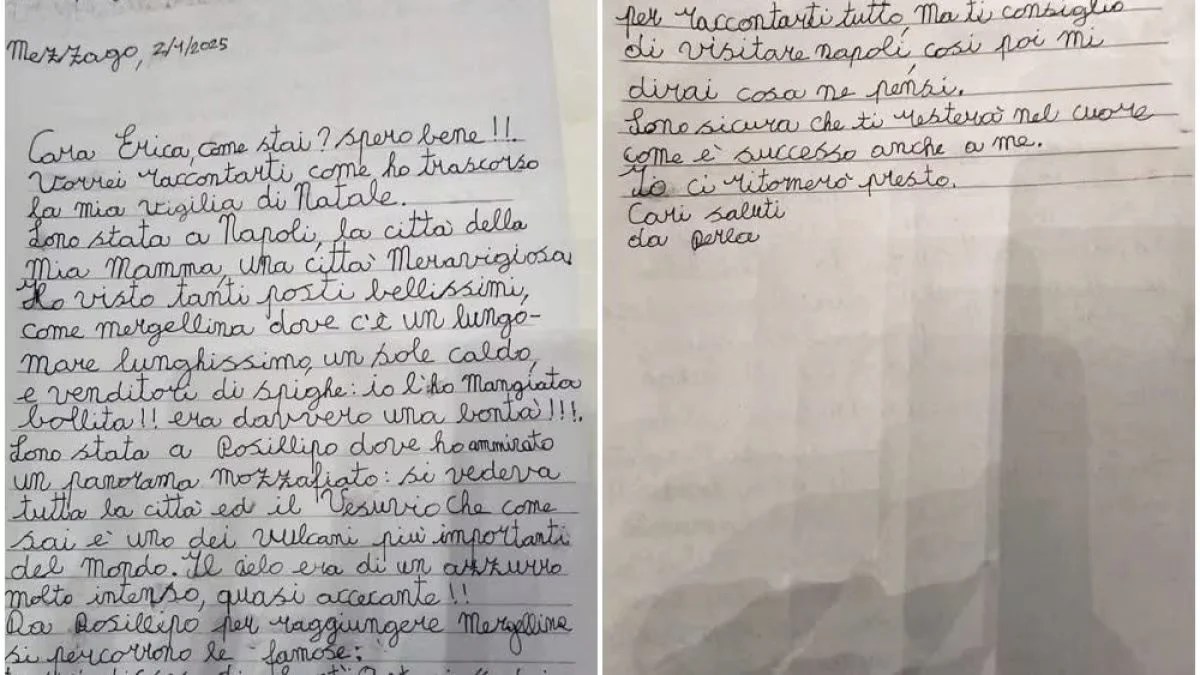 Mezzago, 2/1/2025
Cara Erica, come stai? spero bene!!
Vorrei raccontarti come ho trascorso
la mia vigilia di Natale.
Sono stata a Napoli, la città della
mia mamma, una città meravigiosa.
Ho visto tanti posti bellissimi,
come mergellina dove c'è un lungo-
mare lunghissimo, un sole caldo,
e venditori di spighe: io l'ho mangiata
bollita!! era davvero una bontà!!!.
Sono stata a Posillipo dove ho ammirato
un panorama mozzafiato: si vedeva
tutta la città ed il Vesuvio che come
sai è uno dei vulcani più importanti
del mondo. Il cielo era di un azzurro
molto intenso, quasi accecante!!
Da Posillipo per raggiungere Mergellina
si percorrono le famose:
per raccontarti tutto, ma ti consiglio
di visitare napoli, cosi poi mi
dirai cosa ne pensi.
Sono sicura che ti resterà nel cuore
come è successo anche a me.
Io ci ritornerò presto.
Cari saluti
da Perla